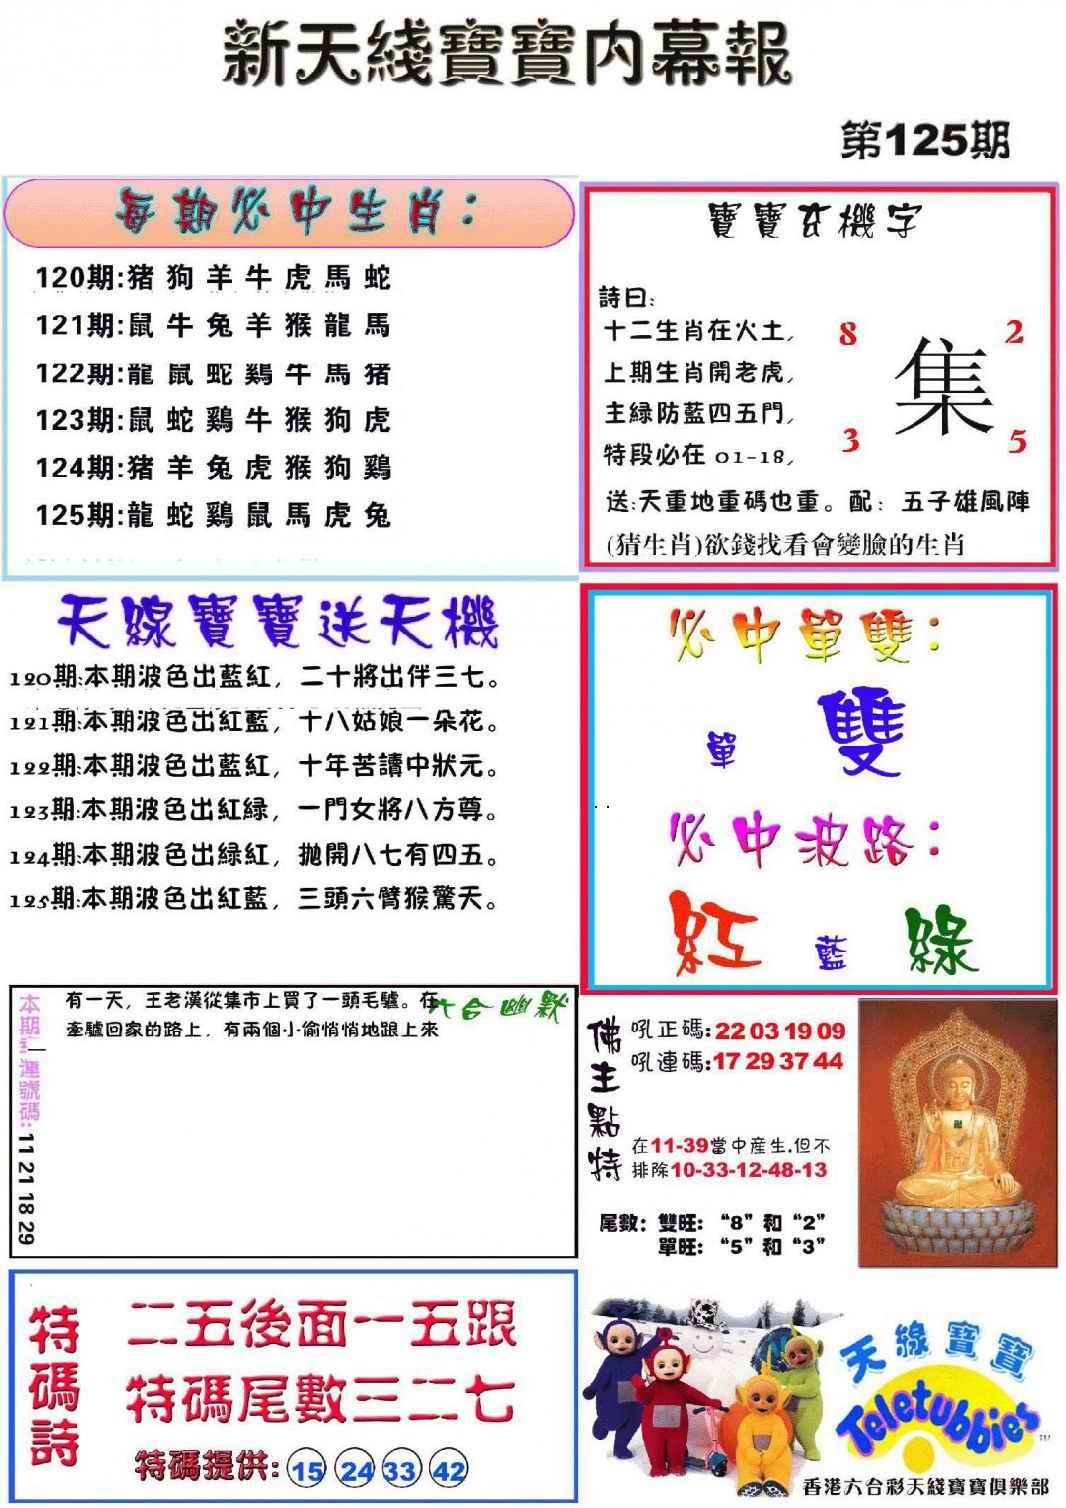 新天綫寶寶内幕報
第125期
每期必中生肖：
120期:猪 狗 羊 牛 虎 馬 蛇
121期:鼠 牛 兔 羊 猴 龍 馬
122期:龍 鼠 蛇 鷄 牛 馬 猪
123期:鼠 蛇 鷄 牛 猴 狗 虎
124期:猪 羊 兔 虎 猴 狗 鷄
125期:龍 蛇 鷄 鼠 馬 虎 兔
寶寶玄機字
詩曰:
十二生肖在火土,
上期生肖開老虎,
主緑防藍四五門,
特段必在 01-18,
8
2
集
3
5
送:天重地重碼也重。配: 五子雄風陣
(猜生肖)欲錢找看會變臉的生肖
天線寶寶送天機
120期:本期波色出藍紅, 二十將出伴三七。
121期:本期波色出紅藍, 十八姑娘一朵花。
122期:本期波色出藍紅, 十年苦讀中狀元。
123期:本期波色出紅緑, 一門女將八方尊。
124期:本期波色出緑紅, 拋開八七有四五。
125期:本期波色出紅藍, 三頭六臂猴驚天。
必中單雙：
單 雙
必中波路：
紅 藍 綠
六合幽默
有一天, 王老漢從集市上買了一頭毛驢。在
牽驢回家的路上, 有兩個小偷悄悄地跟上來
本期
連號碼: 11 21 18 29
佛主點特
吼正碼: 22 03 19 09
吼連碼: 17 29 37 44
在11-39當中産生.但不
排除10-33-12-48-13
尾數: 雙旺: “8” 和 “2”
單旺: “5” 和 “3”
特碼詩
二五後面一五跟
特碼尾數三二七
特碼提供: 15 24 33 42
天線寶寶
Teletubbies
TM
香港六合彩天綫寶寶俱樂部